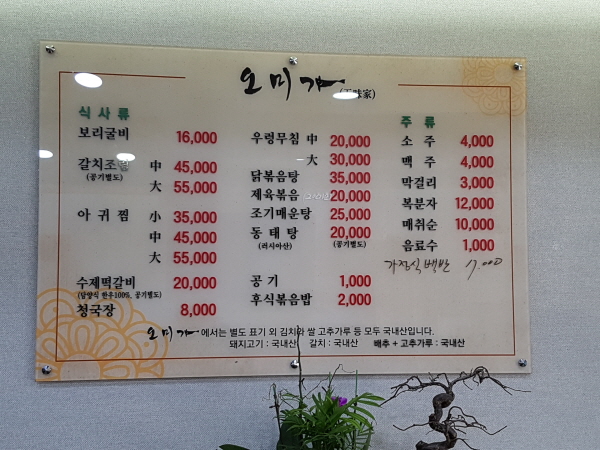 오미가
(五味家)
식사류
보리굴비 16,000
갈치조림 中 45,000
(공기별도)
大 55,000
아귀찜 小 35,000
中 45,000
大 55,000
수제떡갈비 20,000
(담양식 한우100%, 공기별도)
청국장 8,000
우렁무침 中 20,000
大 30,000
닭볶음탕 35,000
제육볶음 20,000
조기매운탕 25,000
동태탕 20,000
(러시아산) (공기별도)
공기 1,000
후식볶음밥 2,000
주류
소주 4,000
맥주 4,000
막걸리 3,000
복분자 12,000
매취순 10,000
음료수 1,000
가정식 백반 17.000
오미가 에서는 별도 표기 외 김치와 쌀 고추가루 등 모두 국내산입니다.
돼지고기 : 국내산 갈치 : 국내산 배추 + 고추가루 : 국내산